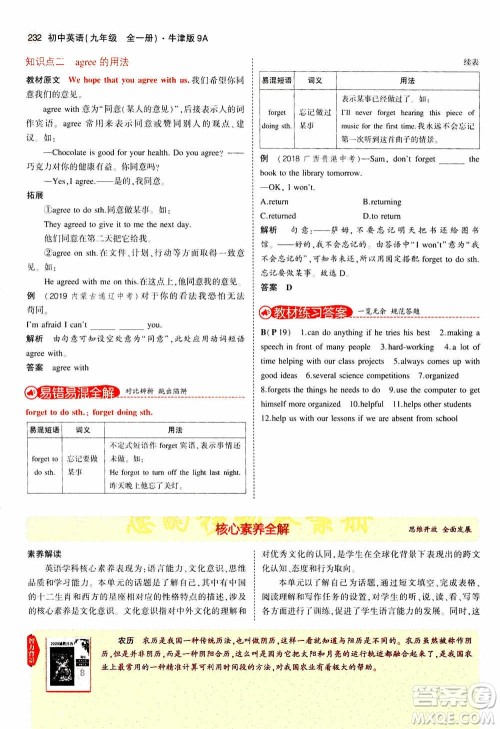 232 初中英语(九年级 全一册)·牛津版 9A
知识点二 agree 的用法
教材原文 We hope that you agree with us. 我们
希望你同意我们的意见。
agree with 意为“同意(某人的意见)”,后接人作
宾语。agree 常用来表示同意或赞同别人的想法。
—Chocolate is good for your health. Do you agree?
巧克力对你的健康有益。你同意吗?
—Yes, I agree. 是的,我同意。
拓展
①agree to do sth. 同意做某事
They agreed to give it to me the next day.
他们同意在第二天把它给我。
②agree on 在文件,计划,行动等方面取得一致
He agreed with me on this. 他同意我对此事的看法。
例 (2019 内蒙古通辽中考)对于你的看法我恐怕不能
苟同。
I'm afraid I can't ________ ________ you.
解析 由句意可知设空处意为“同意”,用动词短语
agree with。
答案 agree with
易错易混全解 对比辨析 跳出陷阱
forget to do sth.; forget doing sth.
易混短语 词义 用法
forget to do sth. 忘记要做某事
不定式短语作 forget 的宾语,表示将来的动作。
He forgot to turn off the light last night.
他昨晚忘记了关灯。
续表
易混短语 词义 用法
forget doing sth. 忘记做过某事
表示某事已经做了,但是忘记了。
I'll never forget hearing this piece of
music for the first time. 我永远不会忘
记第一次听到这首曲子时的情景。
例 (2018 广西贵港中考)—Sam, don't forget ________
the book to the library tomorrow.
—OK, I won't.
A.return B.returning
C.returned D.to return
解析 句意:萨姆,不要忘记明天把书还给图书
馆。好的,我不会忘记的。由答语中“I won't”可
知,还书这件事还没有做。forget to do sth. 表示
忘记要做某事。故选 D。
答案 D
教材练习答案 一览无余 规范答题
B(P19) 1.can do anything if he tries his best 2.making a
speech in front of many people 3.hard-working 4.most of the
time 5.often help with our class projects 6.win the city's
speech competition 7.knows a lot about computers
8.forgets the things he needs to do 9.use the computer to get
himself more organized 10.helpful 11.helps other students
12.explains things to us if we are absent from school
核心素养全解 思维开放 全面发展
素养解读
英语学科核心素养表现为:语言能力、文化意识、思
维品质和学习能力。本单元的话题是谈论中国文化中
的十二生肖和西方文化中的十二星座,体现了核心素养
中的文化意识。文化意识指对中外文化的理解和
对优秀文化的认同,是学生在全球化背景下表现出的跨
文化认知、态度和行为取向。
本单元以话题为主线,把语言知识和文化背景联系
起来,可以让学生在不断扩充文化背景知识的同时,实
现跨文化理解。
智力背景
农历 农历是我国一种传统历法,也被称作阴历、夏历等。农历虽然被称作阴
历,但不是真正的阴历,它是把太阳和月亮的运行规律综合在一起,根据我国农
业上最常用的一种精准计算可利用时间段的方法,对农业有着极大的帮助。
8
答案圈
MXQE.COM